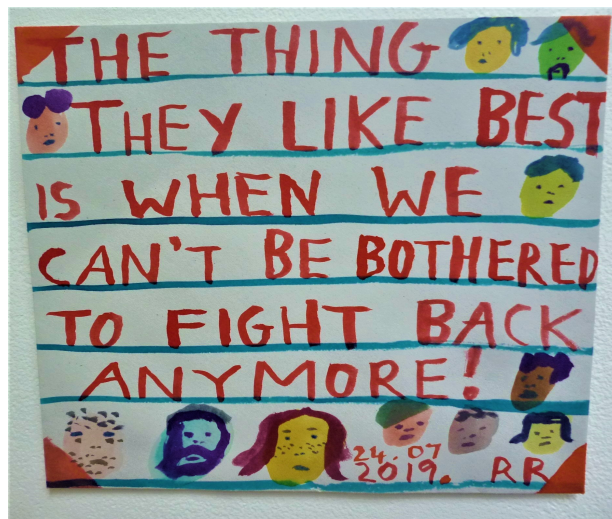 THE THING
THEY LIKE BEST
IS WHEN WE
CAN'T BE BOTHERED
TO FIGHT BACK
ANYMORE!
24.07
2019. RR